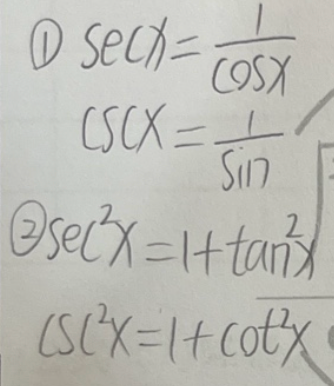 ① secx = 1/cosx
cscx = 1/sin
② sec²x = 1+tan²x
csc²x = 1+cot²x